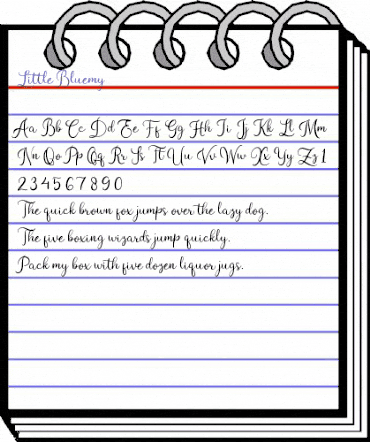 Little Bluemy
Aa Bb Cc Dd Ee Ff Gg Hh Ii Jj Kk Ll Mm
Nn Oo Pp Qq Rr Ss Tt Uu Vv Ww Xx Yy Zz 1
2 3 4 5 6 7 8 9 0
The quick brown fox jumps over the lazy dog.
The five boxing wizards jump quickly.
Pack my box with five dozen liquor jugs.